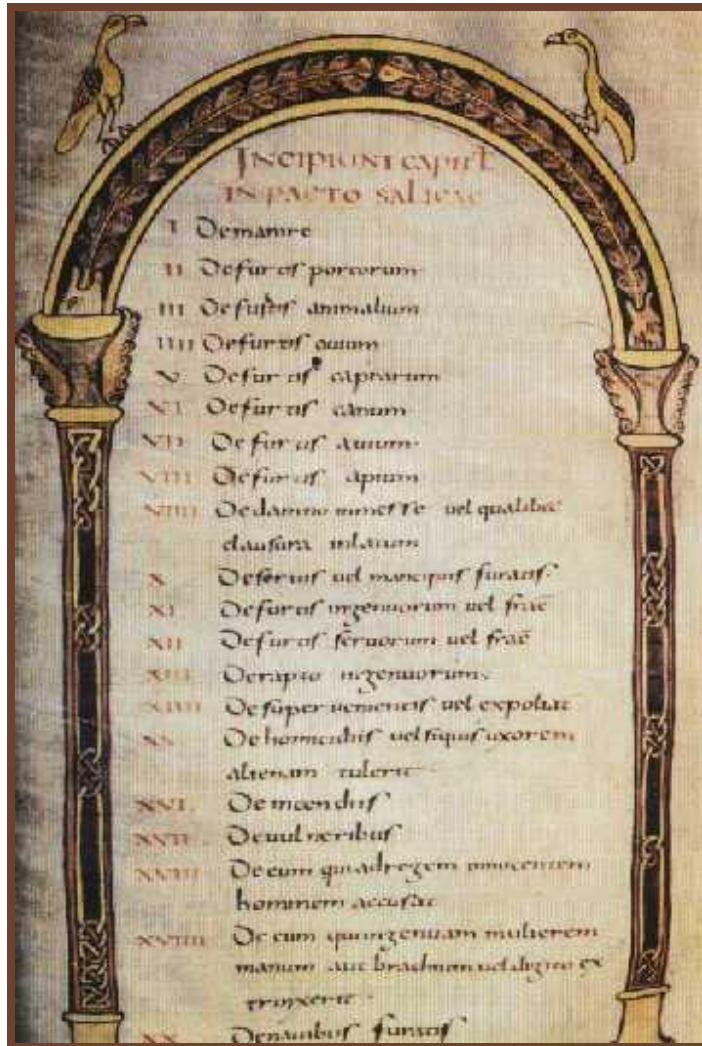 INCIPIUNT CAPITL
IN PACTO SALICAE
I Demanire
II Defurtis porcorum
III Defurtis animalium
IIII Defurtis ouium
V Defurtis caprarum
VI Defurtis canum
VII Defurtis auium
VIII Defurtis apium
VIIII Dedamno inmesse uel qualibec
clausura inlatum
X Deseruis uel mancipiis furatis
XI Defurtis ingenuorum uel frac
XII Defurtis seruorum uel frac
XIII Derapto ingenuorum
XIIII Desuperuenientis uel expoliat
XV Dehomicidiis uel siquis uxorem
alienam tulerit
XVI. Deincendiis
XVII. Deuulneribus
XVIII Deeum qui adregem innocentem
hominem accusat
XVIIII De eum qui ingenuam mulierem
manum aut brachium uel digito ex
trinxerit
XX Denauibus furatis